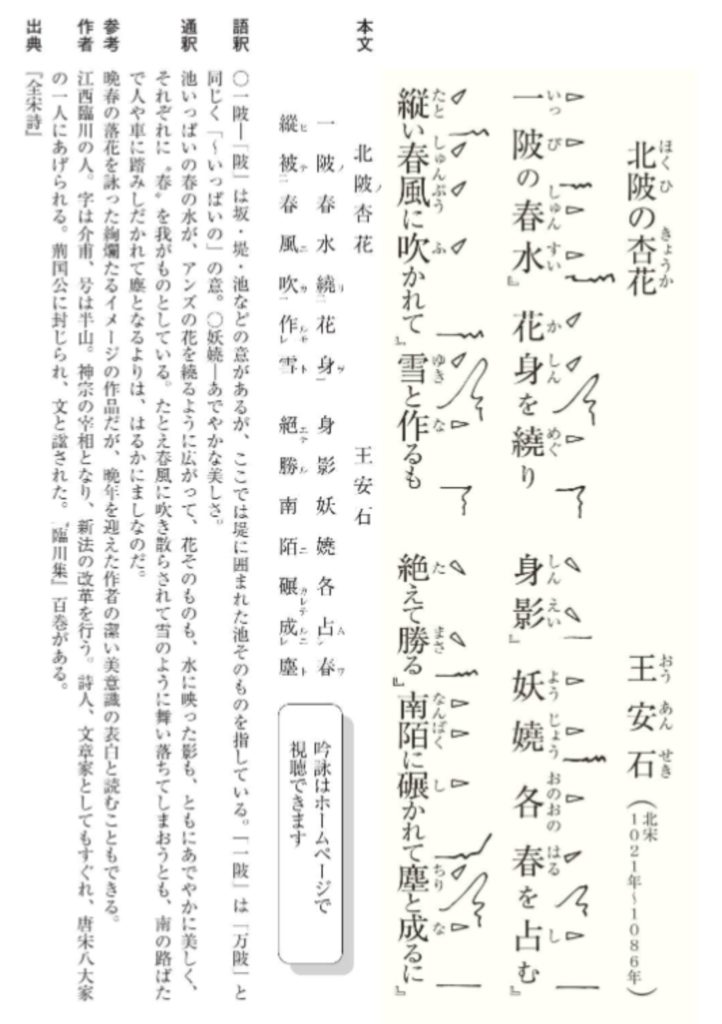 北陂の杏花
王安石（北宋 1021年〜1086年）
一陂の春水』花身を繞り 身影』妖嬈 各春を占む』
縦い春風に吹かれて』雪と作るも 絶えて勝る』南陌に碾かれて塵と成るに』
本文
北陂ノ杏花 王安石
一陂ノ春水繞リ二花身ヲ一 身影妖嬈各占ム春ヲ
縱ヒ被テ二春風ニ吹カ一作ルモレ雪ト 絕エテ勝ル南陌ニ碾カレテ成ルニレ塵ト
吟詠はホームページで
視聴できます
語釈
○一陂―「陂」は坂・堤・池などの意があるが、ここでは堤に囲まれた池そのものを指している。「一陂」は「万陂」と
同じく「〜いっぱいの」の意。○妖嬈―あでやかな美しさ。
通釈
池いっぱいの春の水が、アンズの花を繞るように広がって、花そのものも、水に映った影も、ともにあでやかに美しく、
それぞれに〝春〟を我がものとしている。たとえ春風に吹き散らされて雪のように舞い落ちてしまおうとも、南の路ばた
で人や車に踏みしだかれて塵となるよりは、はるかにましなのだ。
参考
晩春の落花を詠った絢爛たるイメージの作品だが、晩年を迎えた作者の潔い美意識の表白と読むこともできる。
作者
江西臨川の人。字は介甫、号は半山。神宗の宰相となり、新法の改革を行う。詩人、文章家としてもすぐれ、唐宋八大家
の一人にあげられる。荊国公に封じられ、文と諡された。『臨川集』百巻がある。
出典
『全宋詩』